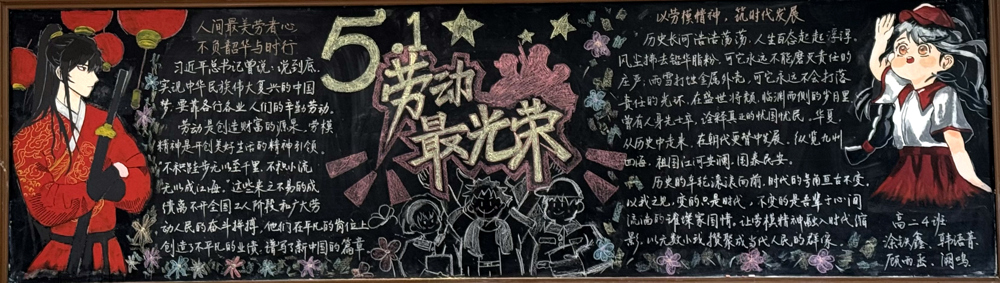 人间最美劳者心
不负韶华与时行
习近平总书记曾说：说到底，
实现中华民族伟大复兴的中国
梦，要靠各行各业人们的辛勤劳动。
劳动是创造财富的源泉，劳模
精神是开创美好生活的精神引领。
“不积跬步无以至千里，不积小流
无以成江海。”这些来之不易的成
绩离不开全国工人阶段和广大劳
动人民的奋斗拼搏，他们在平凡的岗位上
创造了不平凡的业绩，谱写了新中国的篇章
5.1
劳动
最光荣
以劳模精神，筑时代发展
历史长河浩浩荡荡，人生百态起起浮浮。
风尘拂去铅华脂粉，可它永远不能磨灭责任的
庄严，雨雪打蚀金属外壳，可它永远不会打落
责任的光环。在盛世将颓，临渊而侧的岁月里，
曾有人身先士卒，诠释真正的忧国忧民。华夏，
从历史中走来，在朝代更替中发展，纵览九州
四海，祖国江河安澜，国泰民安。
历史的车轮滚滚向前，时代的号角亘古不变。
以我之见，变的只是时代，不变的是吾辈于心间
流淌的谁谍家国情，让劳模精神融入时代缩
影，以无数小我，攒聚成当代人民的群像。
高二4班
鑫、韩语菁、
顾雨丞、阚鸣